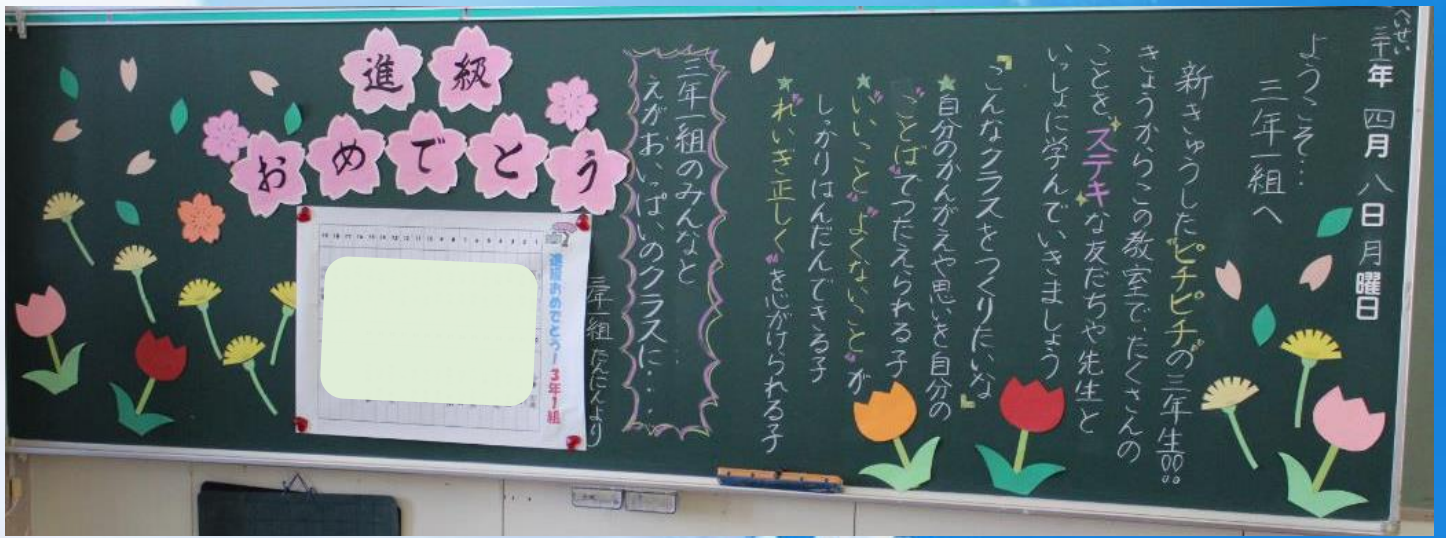 へいせい
三十一年 四月 八日 月曜日
ようこそ…
三年一組へ
新きゅうした"ピチピチ"の三年生!!
きょうからこの教室で、たくさんの
ことを、ステキな友だちや先生と
いっしょに学んでいきましょう
「こんなクラスをつくりたいな」
★自分のかんがえや思いを自分の
"ことば"でつたえられる子
★"いいこと""よくないこと"が
しっかりはんだんできる子
★"れいぎ正しく"を心がけられる子
三年一組のみんなと
えがおいっぱいのクラスに・・・・
三年一組 たんにんより
進級
おめでとう
進級おめでとう!3年1組